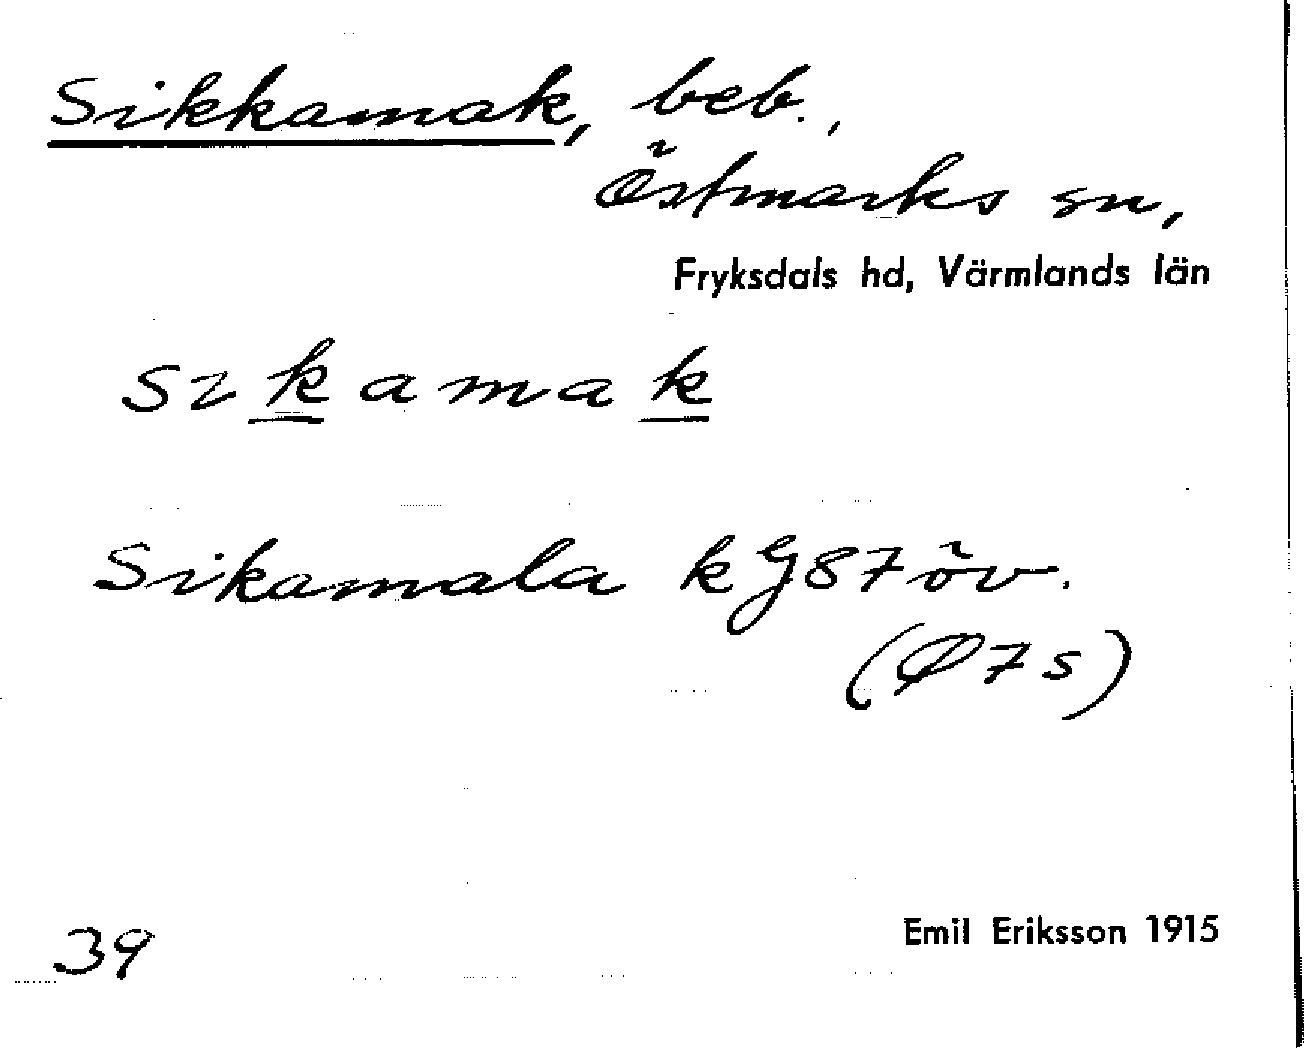 Sikkamak, beb.,
Östmarks sn,
Fryksdals hd, Värmlands län
sikamak
Sikamala k GJ 87 öv.
(Ø 7 s)
39
Emil Eriksson 1915